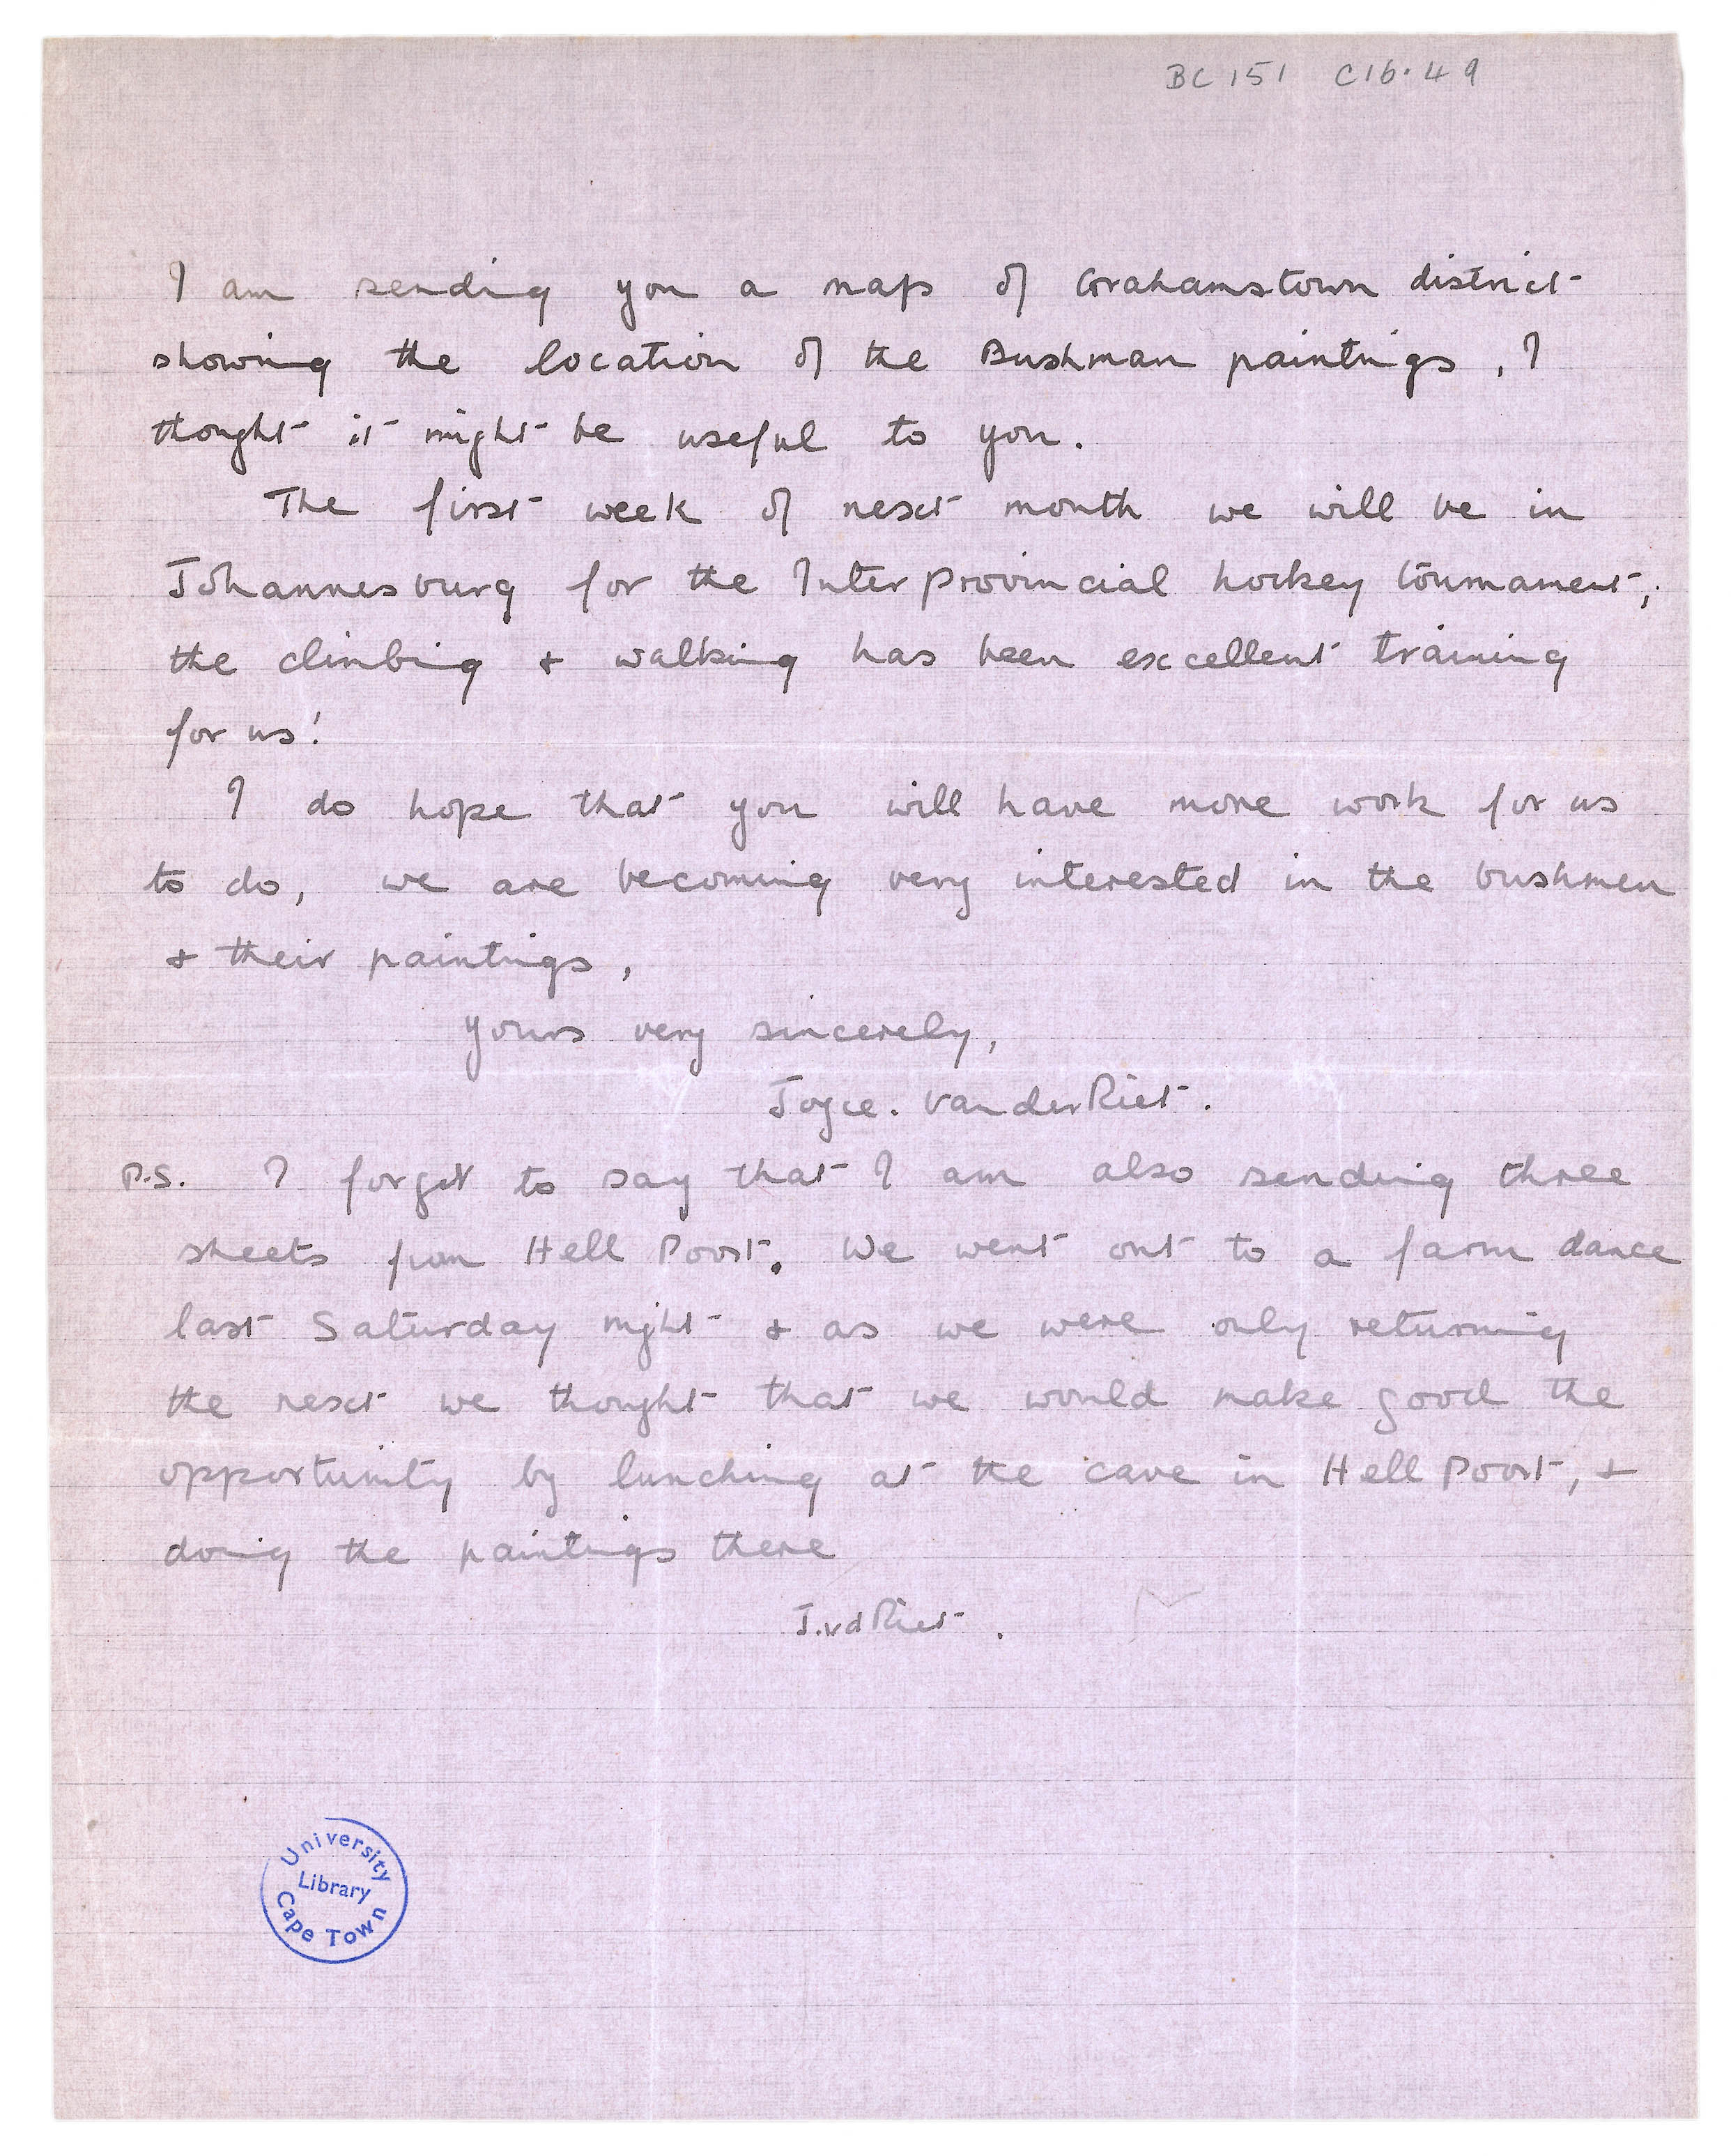 BC 151 C16.49
I am sending you a map of Grahamstown district
showing the location of the Bushman paintings, I
thought it might be useful to you.
The first week of next month we will be in
Johannesburg for the Inter Provincial hockey tournament,
the climbing & walking has been excellent training
for us!
I do hope that you will have more work for us
to do, we are becoming very interested in the bushmen
& their paintings,
yours very sincerely,
Joyce. VanderRiet.
P.S. I forgot to say that I am also sending three
sheets from Hell Poort. We went out to a farm dance
last Saturday night & as we were only returning
the next we thought that we would make good the
opportunity by lunching at the cave in Hell Poort, &
doing the paintings there
J.vdRiet.
University
Library
Cape Town